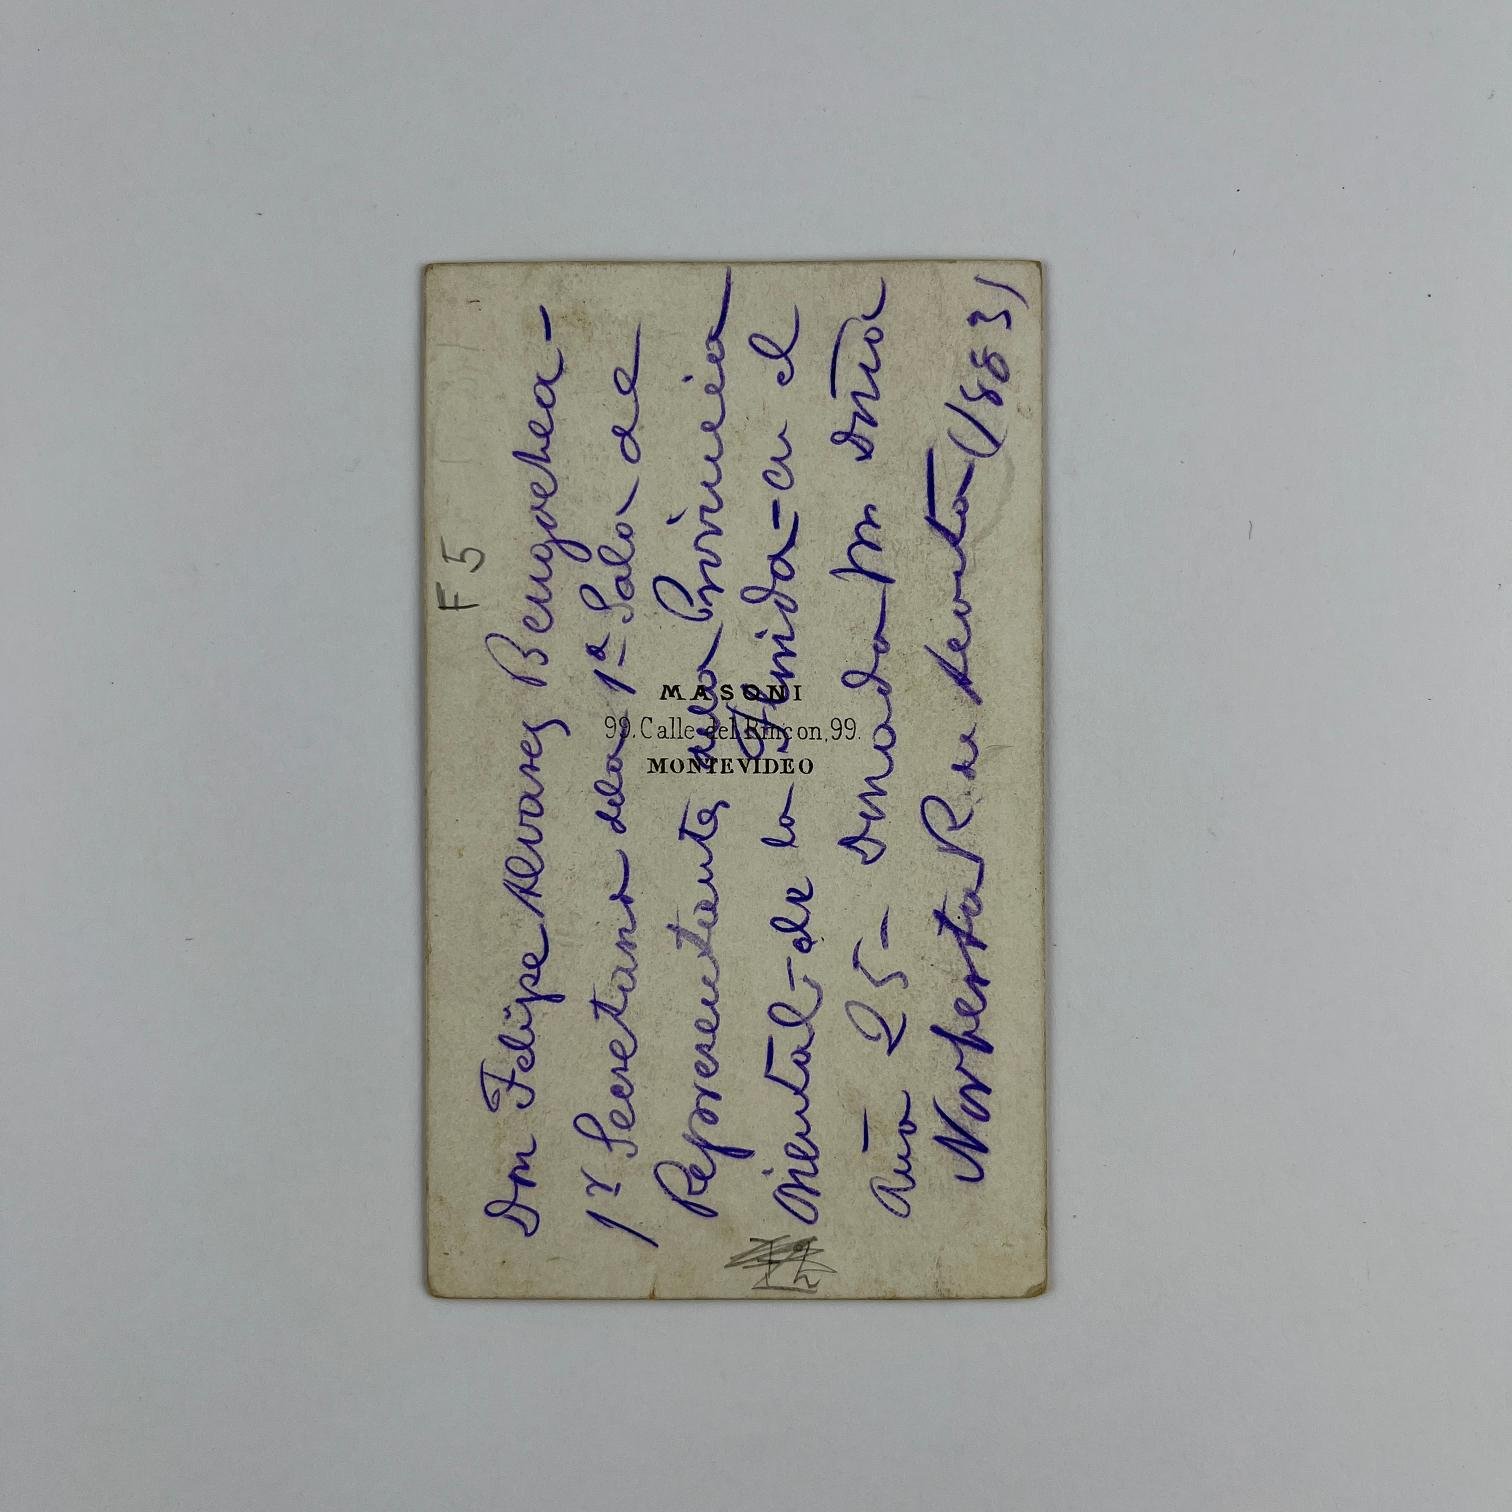 F 5
Don Felipe Alvarez Bengochea-
1r Secretario dela 1ª Sala de
Representantes dela Provincia
Oriental-de la Florida-en el
Año 25- Donada pr Doña
Norberta R de Acosta (1883)
MASONI
99. Calle del Rincon, 99.
MONTEVIDEO